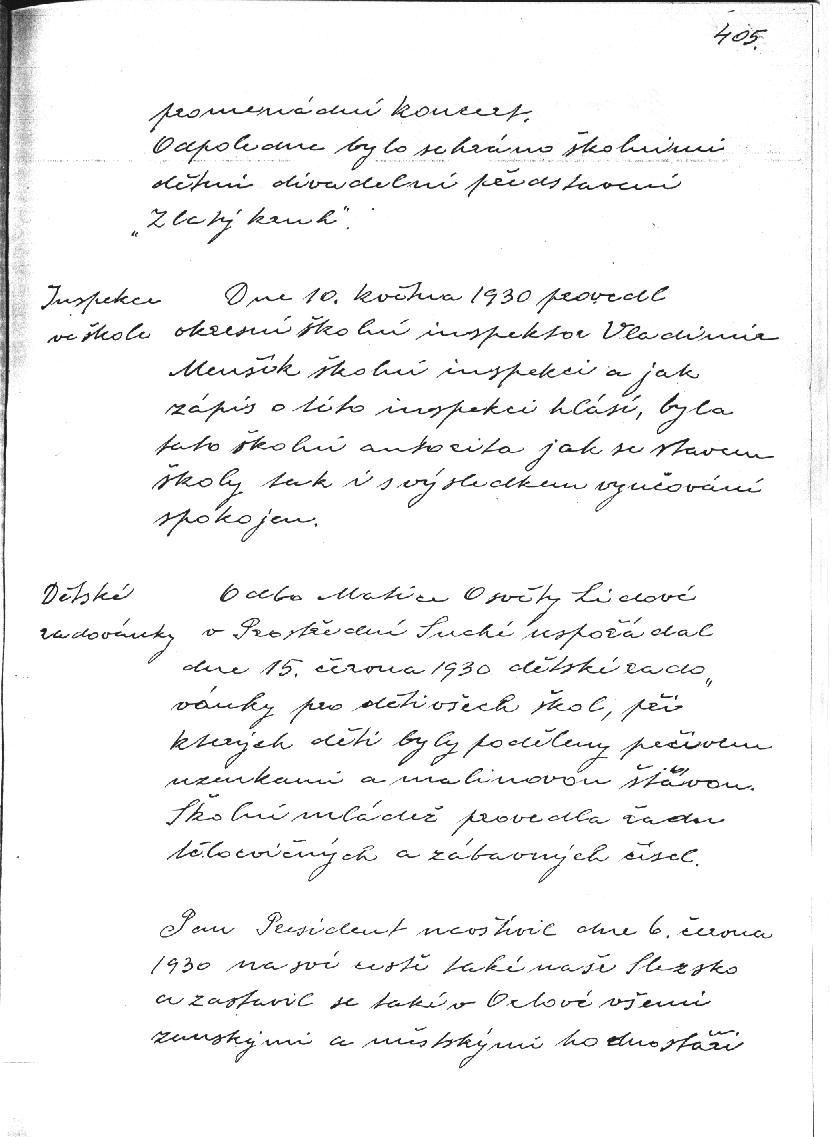 405.
promenádní koncert.
Odpoledne bylo sehráno školními
dětmi divadelní představení
„Zlatý kruh".
Inspekce
ve škole
Dne 10. května 1930 provedl
okresní školní inspektor Vladimír
Menšík školní inspekci a jak
zápis o této inspekci hlásí, byla
tato školní autorita jak se stavem
školy tak i s výsledkem vyučování
spokojen.
Dětské
radovánky
Odbo Matice Osvěty Lidové
v Prostřední Suché uspořádal
dne 15. června 1930 dětské rado„
vánky pro děti všech škol, při
kterých děti byly poděleny pečivem
uzenkami a malinovou šťávou.
Školní mládež provedla řadu
tělocvičných a zábavných čísel.
Pan President navštívil dne 6. června
1930 na své cestě také naše Slezsko
a zastavil se také v Orlové všemi
zemskými a městskými hodnostáři